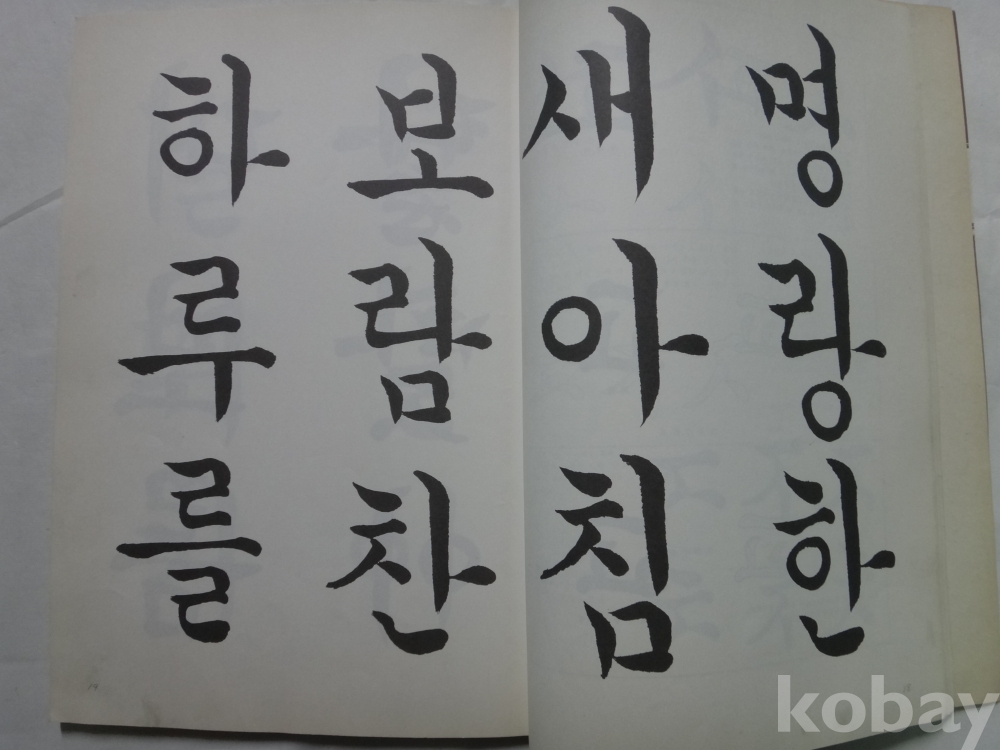 명랑한
새아침
보람찬
하루를
kobay